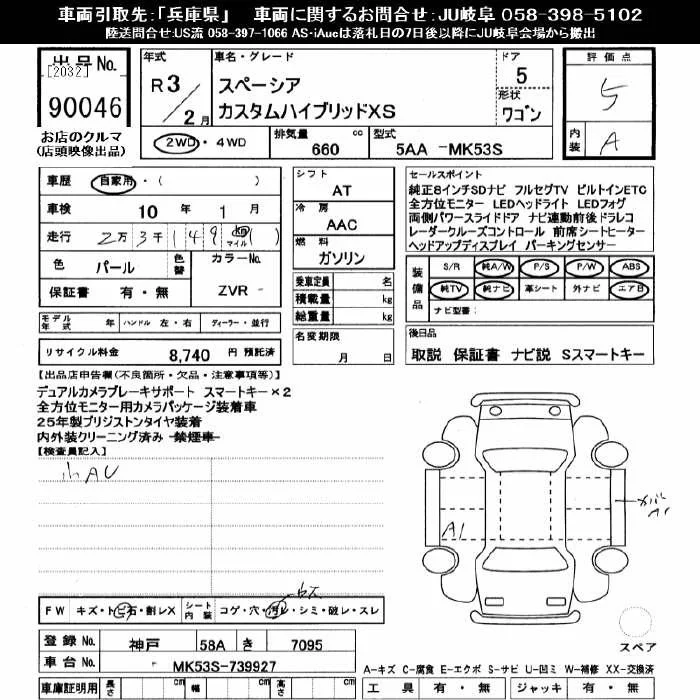 車両引取先：「兵庫県」 車両に関するお問合せ：JU岐阜 058-398-5102
陸送問合せ:US流 058-397-1066 AS-iAucは落札日の7日後以降にJU岐阜会場から搬出
出品No.
[2032]
90046
お店のクルマ
(店頭映像出品)
年式
R 3 / 2月
車名・グレード
スペーシア
カスタムハイブリッドXS
ドア
5
形状
ワゴン
評価点
5
内装
A
2WD・4WD
排気量
660 cc
型式
5AA -MK53S
車歴 自家用・( )
車検 10 年 1 月
走行 2万 3千 149 km マイル ( )
色 パール 色替 カラーNo.
保証書 有・無 ZVR -
モデル年式 年 ハンドル 左・右 ディーラー・並行
リサイクル料金 8,740 円 預託済
シフト
AT
冷房
AAC
燃料
ガソリン
乗車定員 名
積載量 kg
総重量 kg
名変期限
月 日
セールスポイント
純正8インチSDナビ フルセグTV ビルトインETC
全方位モニター LEDヘッドライト LEDフォグ
両側パワースライドドア ナビ連動前後ドラレコ
レーダークルーズコントロール 前席シートヒーター
ヘッドアップディスプレイ パーキングセンサー
装備品
S/R 純A/W P/S P/W ABS
純TV 純ナビ 革シート 外ナビ エアB
ナビ型番：
後日品
取説 保証書 ナビ説 Sスマートキー
【出品店申告欄(不良箇所・欠品・注意事項等)】
デュアルカメラブレーキサポート スマートキー×2
全方位モニター用カメラパッケージ装着車
25年製ブリジストンタイヤ装着
内外装クリーニング済み 禁煙車
【検査員記入】
小AU
A1
カバーA1
FW キズ・トビ石・割レX シート内装 コゲ・穴・汚レ・シミ・破レ・スレ
登録No. 神戸 58A き 7095
車台No. - MK53S-739927
車庫証明用 長さ cm 幅 cm 高さ cm
スペア
A-キズ C-腐食 E-エクボ S-サビ U-凹ミ W-補修 XX-交換済
工具 有・無 ジャッキ 有・無